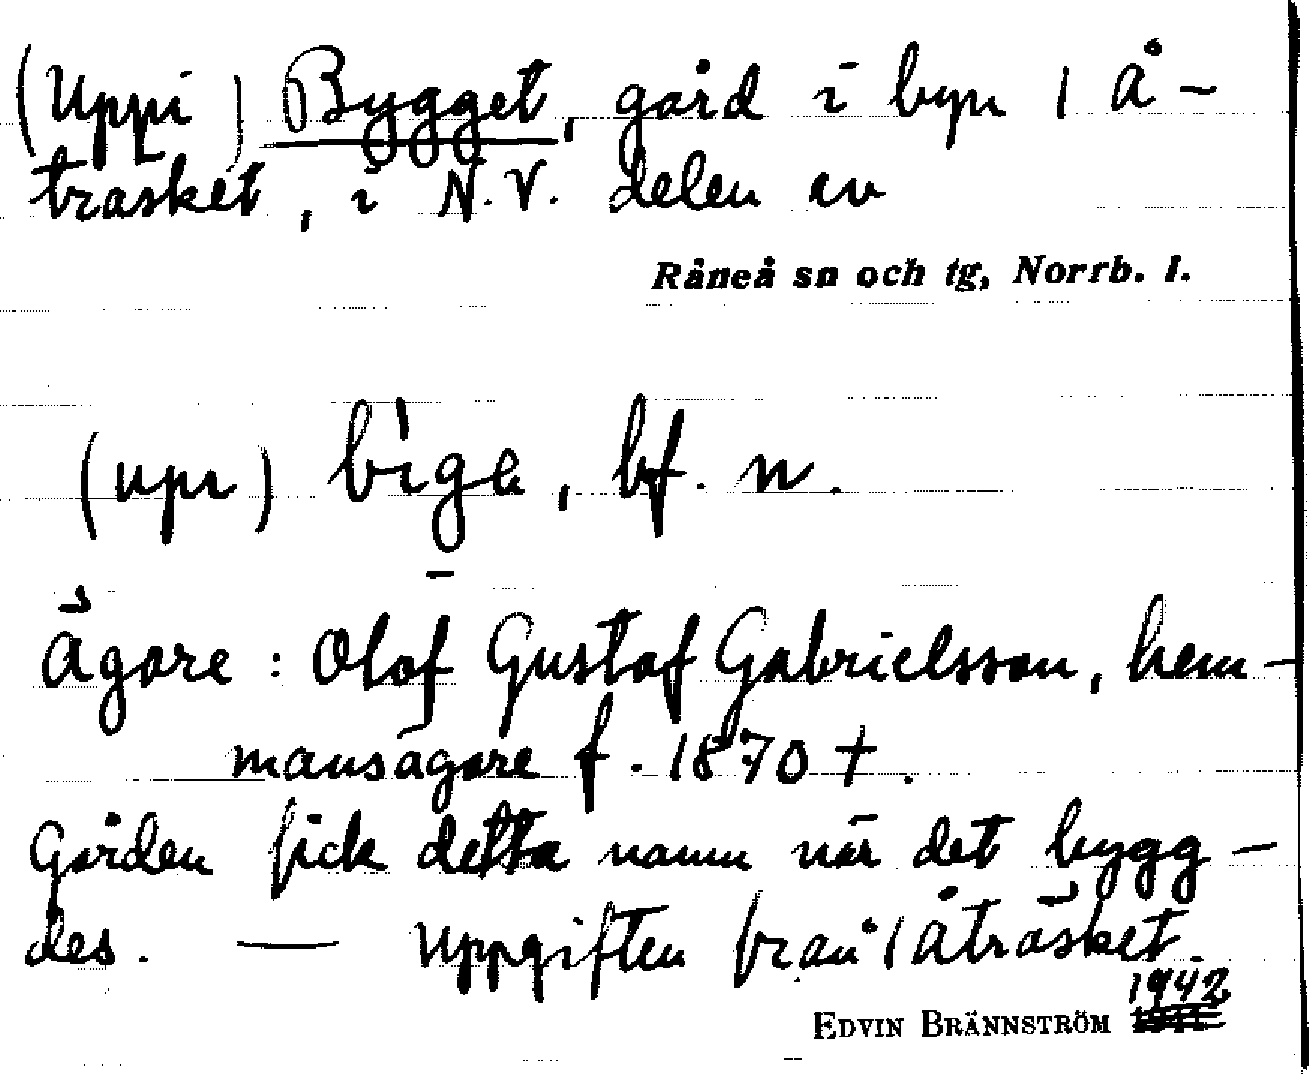 (Uppi) Bygget, gård i byn 1 Å-
träsket, i N.V. delen av
Råneå sn och tg, Norrb. l.
bf. n.
Ägare: Olof Gustaf Gabrielsson, hem-
mansägare f. 1870 †.
Gården fick detta namn när det bygg-
des. — Uppgiften från 1 Åträsket
1942
EDVIN BRÄNNSTRÖM